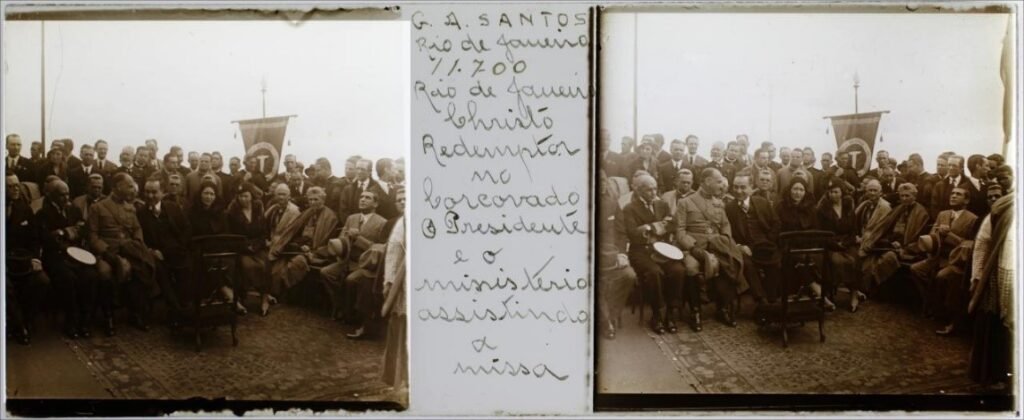 G. A. SANTOS
Rio de Janeiro
11.700
Rio de Janeiro
Christo
Redemptor
no
Corcovado
O Presidente
e o
ministério
assistindo
a
missa
T
T